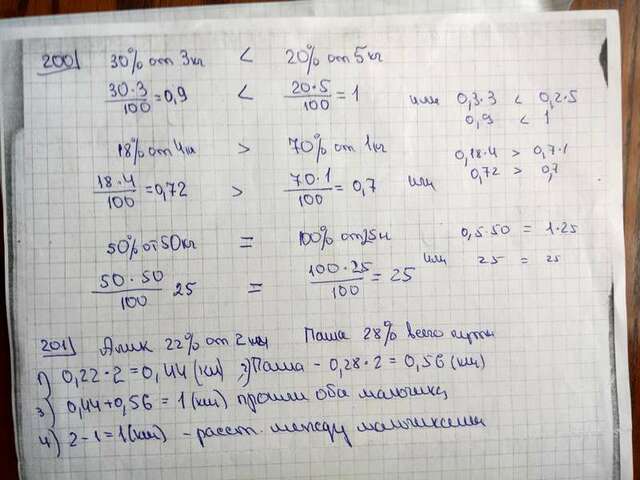 200) 30% от 3кг < 20% от 5кг
30·3/100 = 0,9 < 20·5/100 = 1 или 0,3·3 < 0,2·5
0,9 < 1
18% от 4кг > 70% от 1кг 0,18·4 > 0,7·1
18·4/100 = 0,72 > 70·1/100 = 0,7 или 0,72 > 0,7
50% от 50кг = 100% от 25 0,5·50 = 1·25
50·50/100 25 = 100·25/100 = 25 или 25 = 25
201) Алик 22% от 2 км Паша 28% всего пути
1) 0,22·2 = 0,44 (км) 2) Паша - 0,28·2 = 0,56 (км)
3) 0,44+0,56 = 1 (км) прошли оба мальчика
4) 2-1=1 (км) - расст. между мальчиками